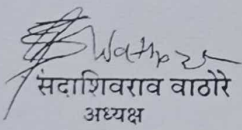 सदाशिवराव वाठोरे
अध्यक्ष